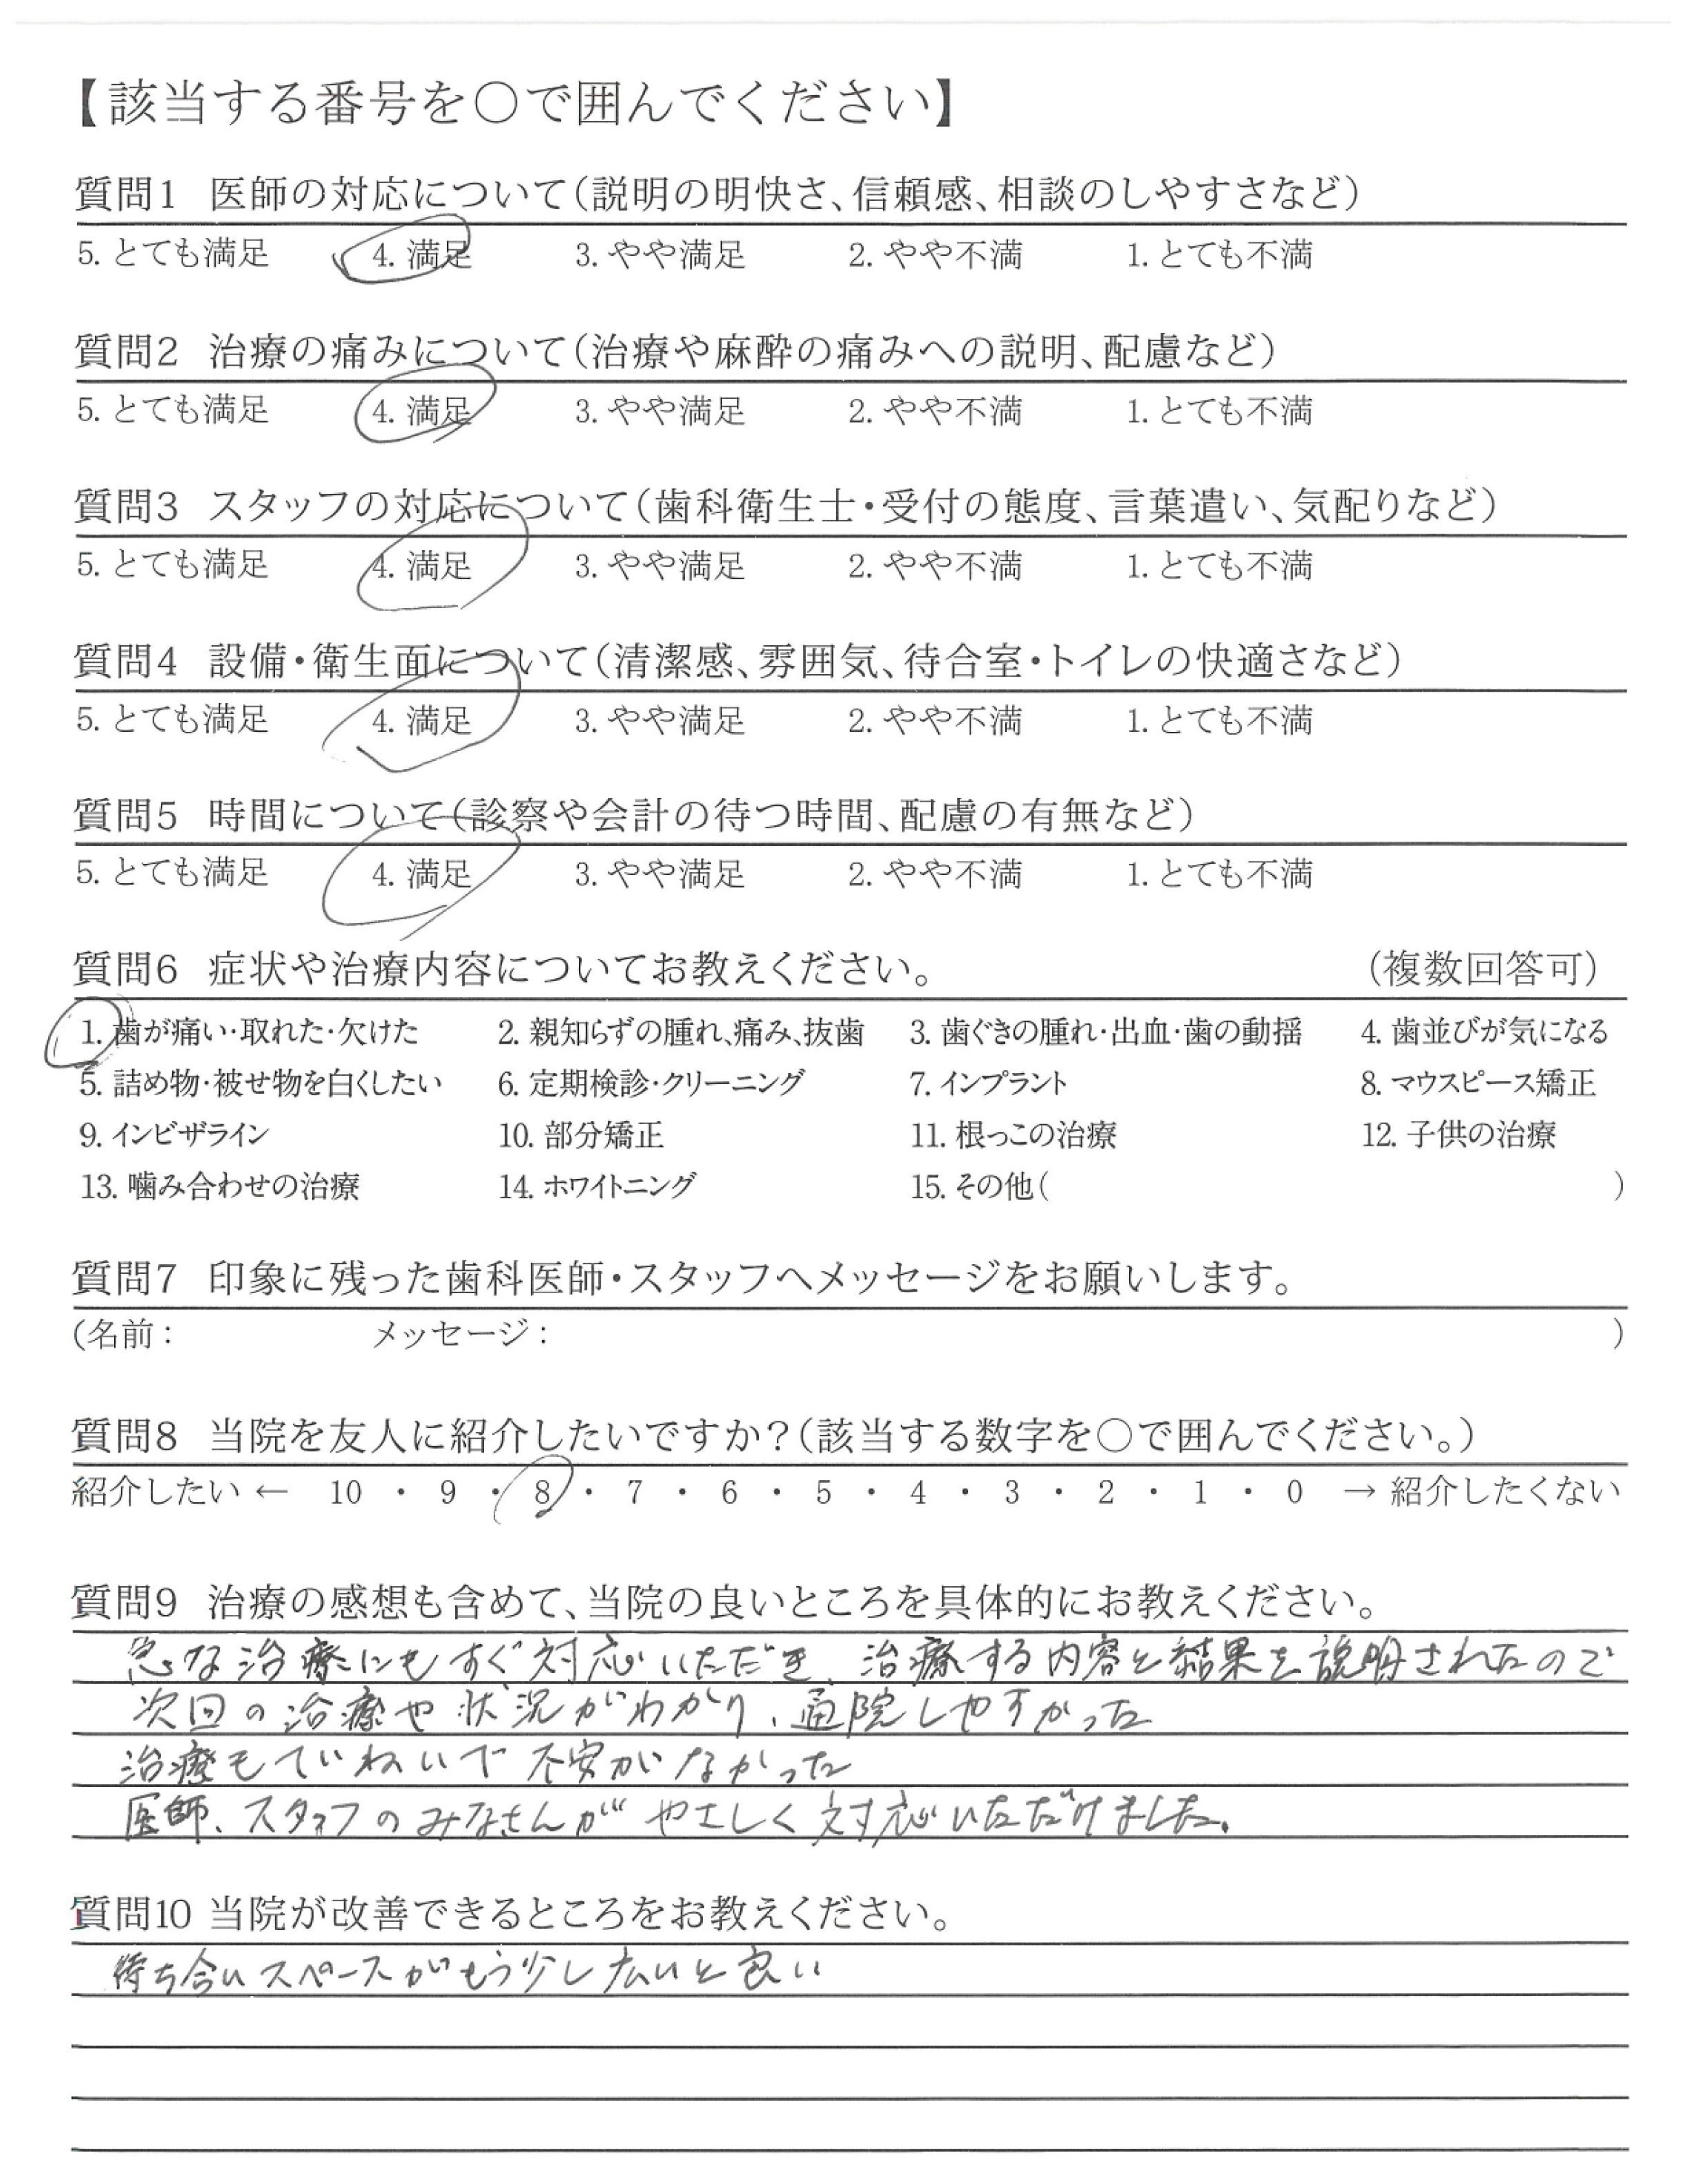 【該当する番号を○で囲んでください】
質問1 医師の対応について(説明の明快さ、信頼感、相談のしやすさなど)
5. とても満足 4. 満足 3. やや満足 2. やや不満 1. とても不満
質問2 治療の痛みについて(治療や麻酔の痛みへの説明、配慮など)
5. とても満足 4. 満足 3. やや満足 2. やや不満 1. とても不満
質問3 スタッフの対応について(歯科衛生士・受付の態度、言葉遣い、気配りなど)
5. とても満足 4. 満足 3. やや満足 2. やや不満 1. とても不満
質問4 設備・衛生面について(清潔感、雰囲気、待合室・トイレの快適さなど)
5. とても満足 4. 満足 3. やや満足 2. やや不満 1. とても不満
質問5 時間について(診察や会計の待つ時間、配慮の有無など)
5. とても満足 4. 満足 3. やや満足 2. やや不満 1. とても不満
質問6 症状や治療内容についてお教えください。 (複数回答可)
1. 歯が痛い・取れた・欠けた 2. 親知らずの腫れ、痛み、抜歯 3. 歯ぐきの腫れ・出血・歯の動揺 4. 歯並びが気になる
5. 詰め物・被せ物を白くしたい 6. 定期検診・クリーニング 7. インプラント 8. マウスピース矯正
9. インビザライン 10. 部分矯正 11. 根っこの治療 12. 子供の治療
13. 噛み合わせの治療 14. ホワイトニング 15. その他( )
質問7 印象に残った歯科医師・スタッフへメッセージをお願いします。
(名前: メッセージ: )
質問8 当院を友人に紹介したいですか?(該当する数字を○で囲んでください。)
紹介したい ← 10 ・ 9 ・ 8 ・ 7 ・ 6 ・ 5 ・ 4 ・ 3 ・ 2 ・ 1 ・ 0 → 紹介したくない
質問9 治療の感想も含めて、当院の良いところを具体的にお教えください。
急な治療にもすぐ対応いただき、治療する内容と結果を説明されたので
次回の治療や状況がわかり、通院しやすかった
治療もていねいで不安がなかった
医師、スタッフのみなさんがやさしく対応いただけました。
質問10 当院が改善できるところをお教えください。
待ち合いスペースがもう少し広いと良い